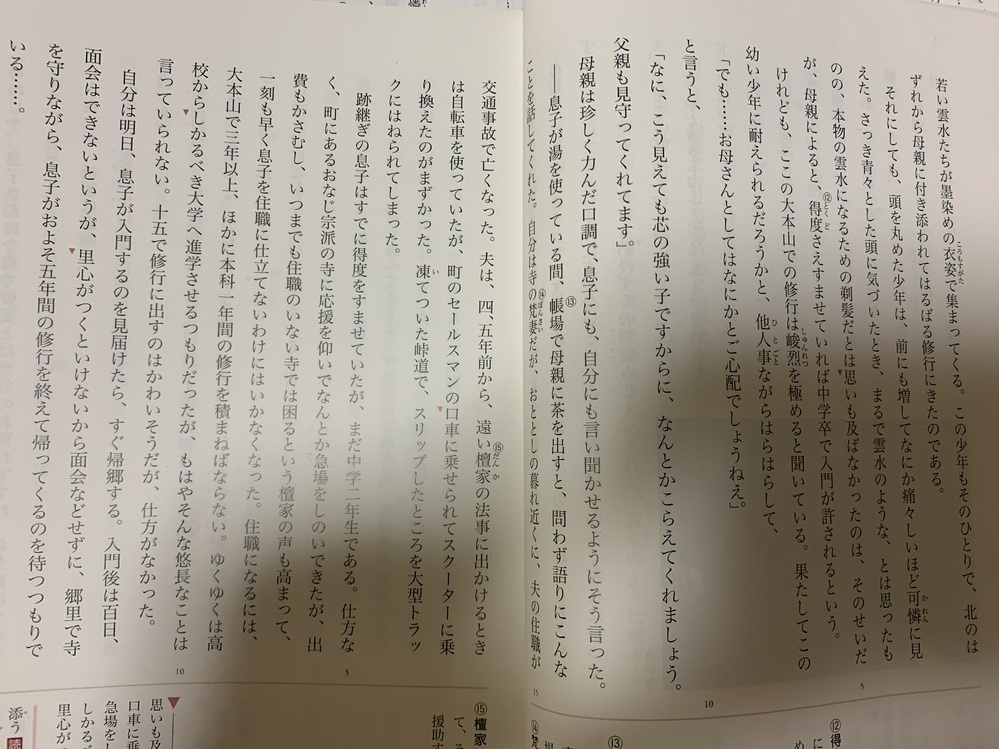 若い雲水たちが墨染めの衣姿で集まってくる。この少年もそのひとりで、北のは
ずれから母親に付き添われてはるばる修行にきたのである。
それにしても、頭を丸めた少年は、前にも増してなにか痛々しいほど可憐に見
えた。さっき青々とした頭に気づいたとき、まるで雲水のような、とは思ったも
のの、本物の雲水になるための剃髪だとは思いも及ばなかったのは、そのせいだ
が、母親によると、⑫得度さえすませていれば中学卒で入門が許されるという。
けれども、ここの大本山での修行は峻烈を極めると聞いている。果たしてこの
幼い少年に耐えられるだろうかと、他人事ながらはらはらして、
「でも……お母さんとしてはなにかとご心配でしょうねえ。」
と言うと、
「なに、こう見えても芯の強い子ですからに、なんとかこらえてくれましょう。
父親も見守ってくれてます」。
母親は珍しく力んだ口調で、息子にも、自分にも言い聞かせるようにそう言った。
――息子が湯を使っている間、⑬帳場で母親に茶を出すと、問わず語りにこんな
ことを話してくれた。自分は寺の⑭梵妻だが、おととしの暮れ近くに、夫の住職が
交通事故で亡くなった。夫は、四、五年前から、遠い⑮檀家の法事に出かけるとき
は自転車を使っていたが、町のセールスマンの口車に乗せられてスクーターに乗
り換えたのがまずかった。凍てついた峠道で、スリップしたところを大型トラッ
クにはねられてしまった。
跡継ぎの息子はすでに得度をすませていたが、まだ中学二年生である。仕方な
く、町にあるおなじ宗派の寺に応援を仰いでなんとか急場をしのいできたが、出
費もかさむし、いつまでも住職のいない寺では困るという檀家の声も高まって、
一刻も早く息子を住職に仕立てないわけにはいかなくなった。住職になるには、
大本山で三年以上、ほかに本科一年間の修行を積まねばならない。ゆくゆくは高
校からしかるべき大学へ進学させるつもりだったが、もはやそんな悠長なことは
言っていられない。十五で修行に出すのはかわいそうだが、仕方がなかった。
自分は明日、息子が入門するのを見届けたら、すぐ帰郷する。入門後は百日、
面会はできないというが、里心がつくといけないから面会などせずに、郷里で寺
を守りながら、息子がおよそ五年間の修行を終えて帰ってくるのを待つつもりで
いる……。
5
10
15
5
10
⑫得
⑬
⑭梵
⑮檀家
て、
援助す
思いも及
口車に乗
急場をし
しかるべ
里心が
添う